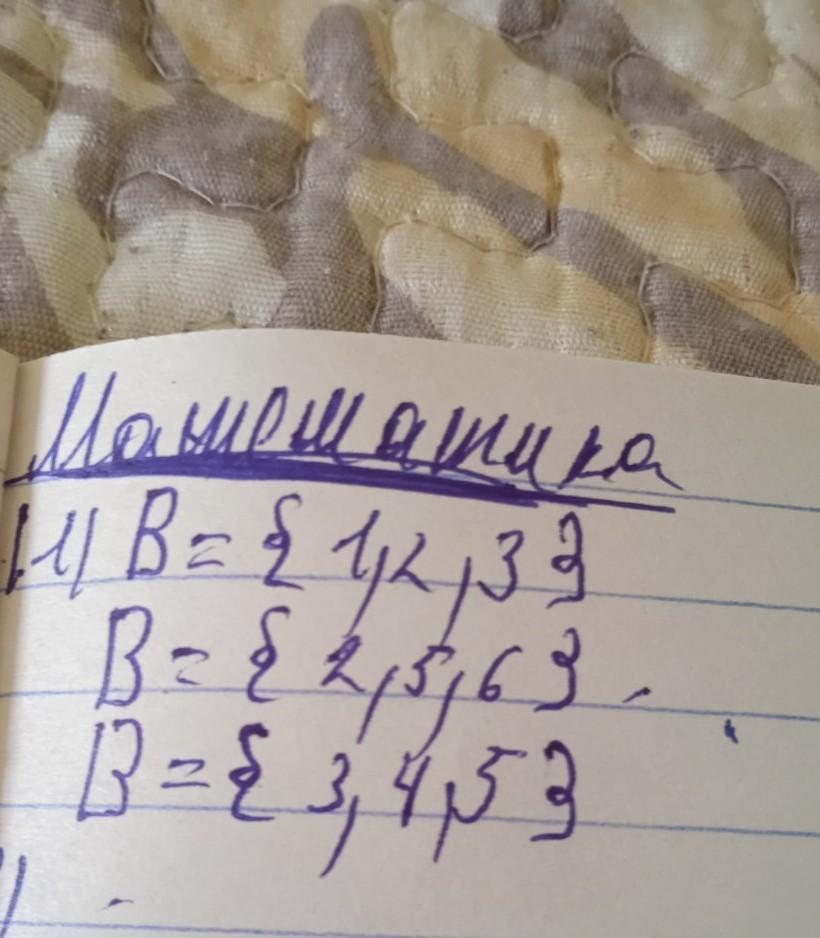 Математика
1.1) B = { 1, 2, 3 }
B = { 2, 5, 6 }
B = { 3, 4, 5 }